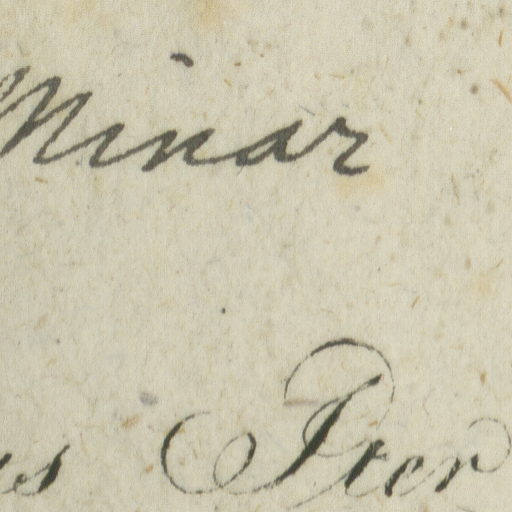 Minar
us Iter